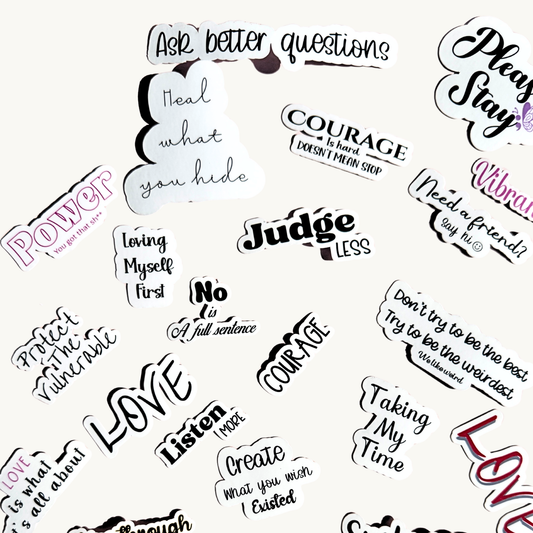 Ask better questions
Pleas
Stay
Heal
what
you hide
COURAGE
Is hard
DOESN'T MEAN STOP
Vibran
Need a friend?
Say hi
Power
You got that sh**
Loving
Myself
First
Judge
LESS
No
is
A full sentence
Don't try to be the best
Try to be the weirdest
We like weird
Protect
The
Vulnerable
COURAGE
LOVE
Listen
MORE
Taking
My
Time
LOVE
LOVE
is what
it's all about
Create
What you wish
Existed
through